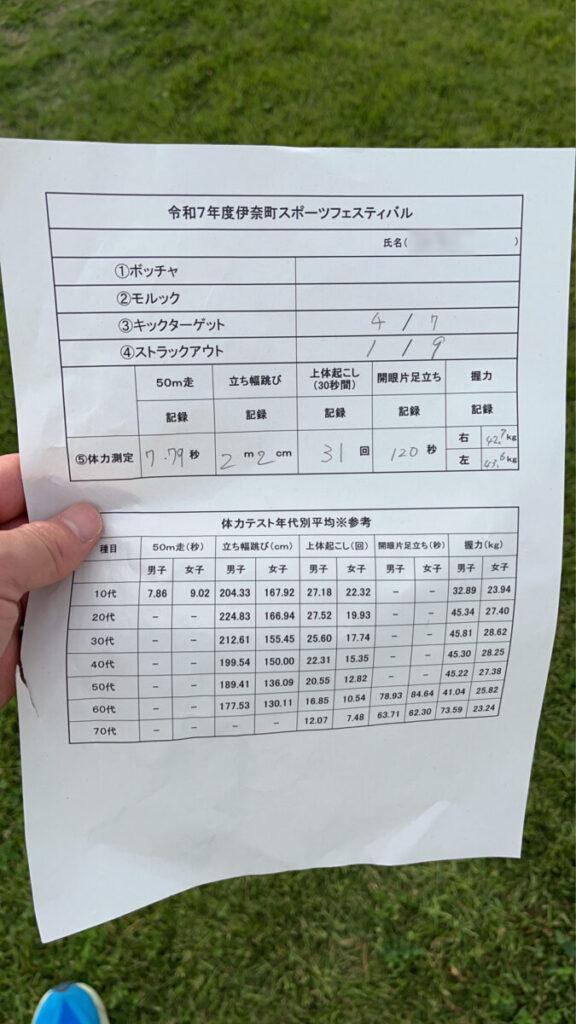 令和7年度伊奈町スポーツフェスティバル
氏名( )
①ボッチャ
②モルック
③キックターゲット 4 / 7
④ストラックアウト 1 / 9
50m走 立ち幅跳び 上体起こし(30秒間) 開眼片足立ち 握力
記録 記録 記録 記録 記録
⑤体力測定 7.79秒 2m2cm 31回 120秒 右 42.7kg
左 43.6kg
体力テスト年代別平均※参考
種目 50m走(秒) 立ち幅跳び(cm) 上体起こし(回) 開眼片足立ち(秒) 握力(kg)
男子 女子 男子 女子 男子 女子 男子 女子 男子 女子
10代 7.86 9.02 204.33 167.92 27.18 22.32 － － 32.89 23.94
20代 － － 224.83 166.94 27.52 19.93 － － 45.34 27.40
30代 － － 212.61 155.45 25.60 17.74 － － 45.81 28.62
40代 － － 199.54 150.00 22.31 15.35 － － 45.30 28.25
50代 － － 189.41 136.09 20.55 12.82 － － 45.22 27.38
60代 － － 177.53 130.11 16.85 10.54 78.93 84.64 41.04 25.82
70代 － － － － 12.07 7.48 63.71 62.30 73.59 23.24